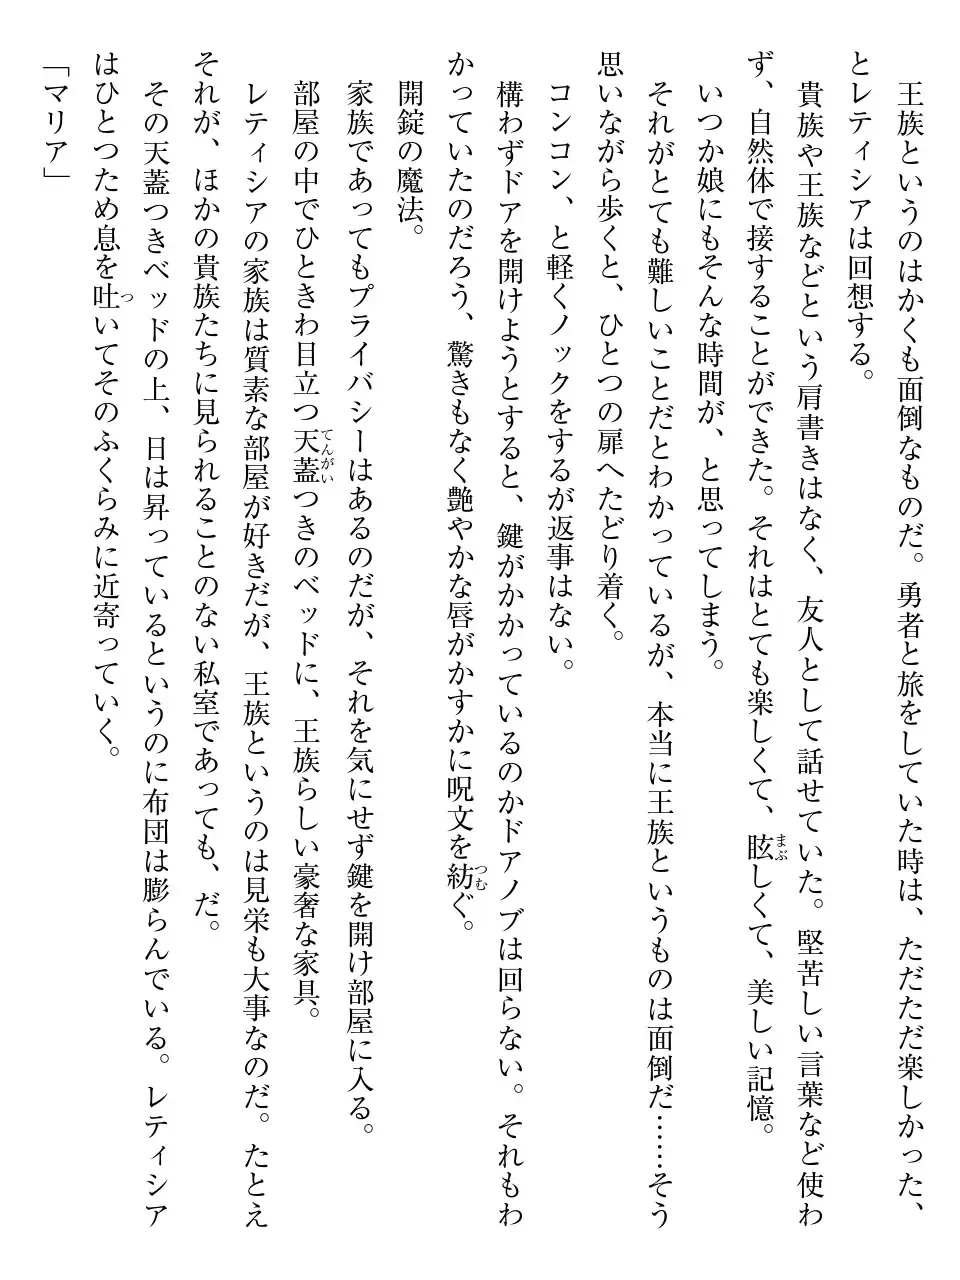 王族というのはかくも面倒なものだ。勇者と旅をしていた時は、ただただ楽しかった、
とレティシアは回想する。
貴族や王族などという肩書きはなく、友人として話せていた。堅苦しい言葉など使わ
ず、自然体で接することができた。それはとても楽しくて、眩しくて、美しい記憶。
いつか娘にもそんな時間が、と思ってしまう。
それがとても難しいことだとわかっているが、本当に王族というものは面倒だ……そう
思いながら歩くと、ひとつの扉へたどり着く。
コンコン、と軽くノックをするが返事はない。
構わずドアを開けようとすると、鍵がかかっているのかドアノブは回らない。それもわ
かっていたのだろう、驚きもなく艶やかな唇がかすかに呪文を紡ぐ。
開錠の魔法。
家族であってもプライバシーはあるのだが、それを気にせず鍵を開け部屋に入る。
部屋の中でひときわ目立つ天蓋つきのベッドに、王族らしい豪奢な家具。
レティシアの家族は質素な部屋が好きだが、王族というのは見栄も大事なのだ。たとえ
それが、ほかの貴族たちに見られることのない私室であっても、だ。
その天蓋つきベッドの上、日は昇っているというのに布団は膨らんでいる。レティシア
はひとつため息を吐いてそのふくらみに近寄っていく。
「マリア」